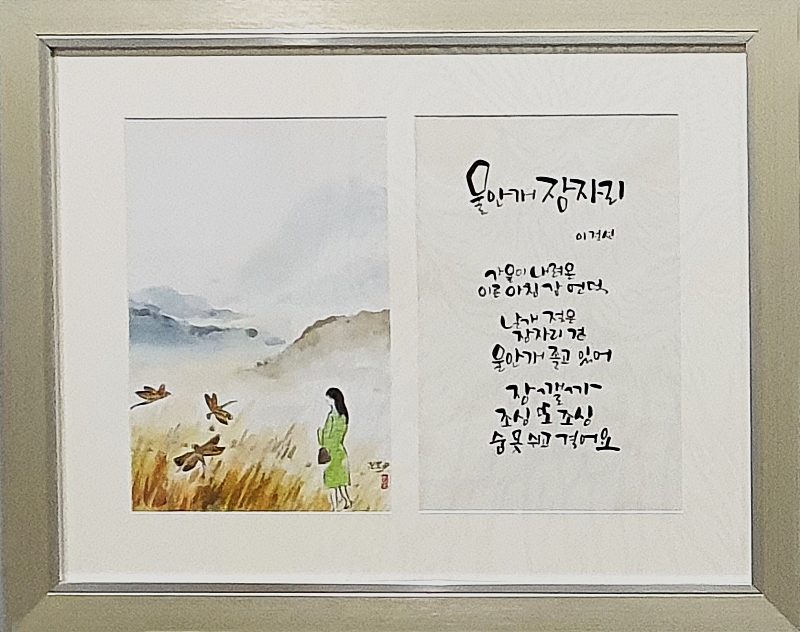 물안개 장자리
이정선
가을이 내려온
이른 아침 강 언덕
날개 젖은
잠자리 곁
물안개 졸고 있어
잠 깰까
조심 또 조심
숨 못 쉬고 걸어요